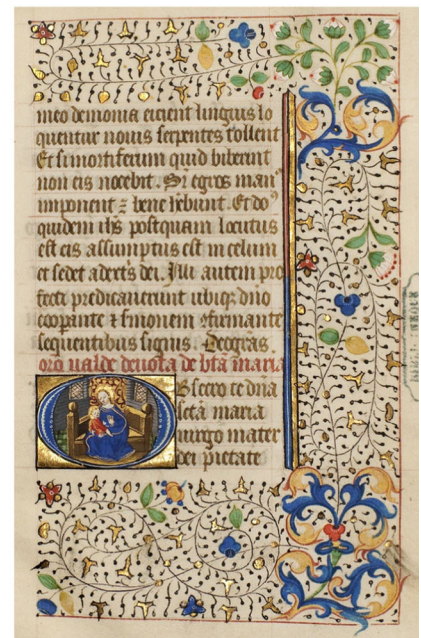 meo demonia eicient linguis lo
quentur nouis serpentes tollent
Et si mortiferum quid biberint
non eis nocebit. Sr̄ egros man
imponent ⁊ bene hēbunt. Et dō
quidem ihs̄ postquam locutus
est eis assumptus est in celum
et sedet a dextris dei. Illi autem pro
fecti predicauerunt ubiqȝ dn̄o
cooꝑante ⁊ sermonem ꝯfirmante
sequentibus signis. Deo gr̄as
orō ualde deuota de bt̄a maria
Obsecro te dn̄a
sctā maria
uirgo mater
dei pietate